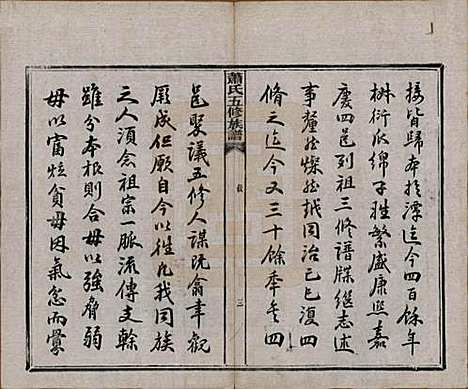 接皆歸本於潭迄今四百餘年
椒衍瓜綿子姓繁盛康熙嘉
慶四邑列祖三修譜牒繼志述
事釐然燦然越同治己巳復四
脩之迄今又三十餘年矣四
蕭氏五修族譜
三
邑聚議五修人謀既翕幸觀
厥成但願自今以往凡我同族
之人須念祖宗一脈流傳支幹
雖分本根則合毋以強脅弱
毋以富炫貧毋因氣忿而釁